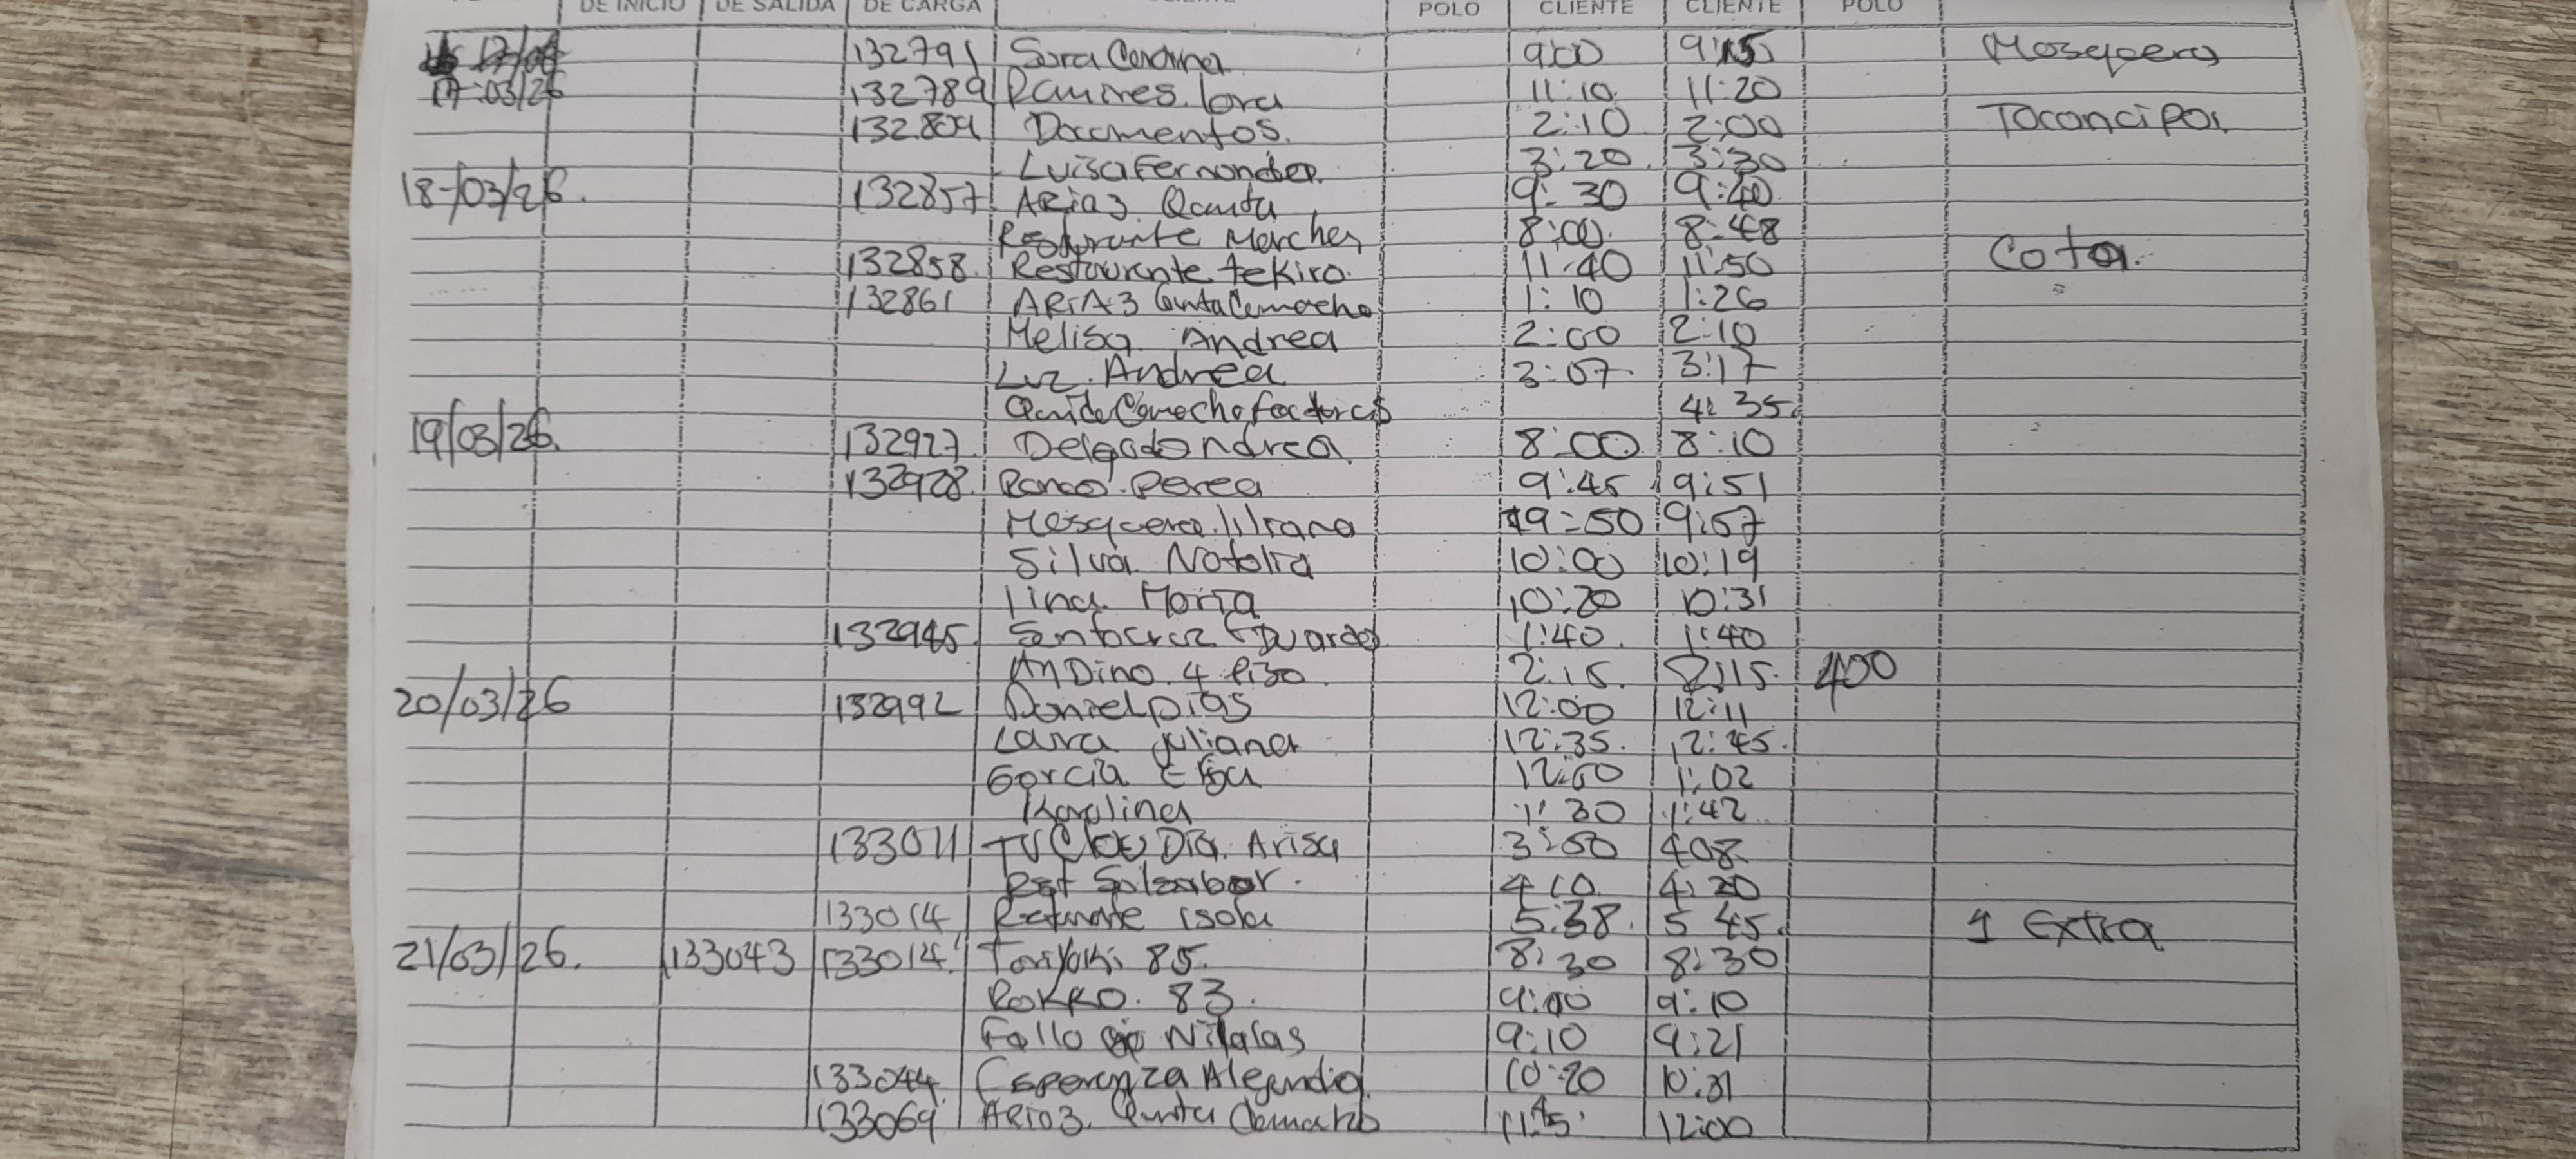 DE INICIO DE SALIDA DE CARGA POLO CLIENTE CLIENTE POLO
17/03 132791 Sora Carolina 9:00 9:15 Mosquera
17:03/26 132789 Ramires. lora 11:10 11:20
132.809 Documentos. 2:10 2:00 Tocancipa.
Luisa Fernandez. 3:20 3:30
18-/03/26. 132857. ARia3. Quinta 9:30 9:40
Marchez 8:00 8:48
132858. Restaurante tekiro. 11:40 11:50 Cota.
132861 ARiA3 QuntaCamacho 1:10 1:26
Melisa Andrea 2:00 2:10
Luz. Andrea 3:07. 3:17
4:35.
19/03/26. 132927. Delgadondrea 8:00 8:10
132928. Perea 9:45 9:51
Mosquera. liliana 9:50 9:57
Silva Natalia 10:00 10:19
lina Maria 10:20 10:31
132945. Santacruz Duardo 1:40. 1:40
AnDino. 4 Piso. 2:15. 2:15. 400
20/03/26 132992 Danielpias 12:00 12:11
Lara juliana 12:35. 12:45.
Garcia 12:50 1:02
Karolina 1:30 1:42
133011 Dia. Arisa 3:50 4:08
4:10. 4:20
133014 isola 5:38. 5 45. 1 Extra
21/03/26. 133043 133014. Toriyoki 85. 8:30 8:30
ROKRO. 83. 9:00 9:10
Fallo Nilalas 9:10 9:21
133044 Esperanza Alejandia 10:20 10:31
133069 ARia3. Qunta Camacho 11:45 12:00